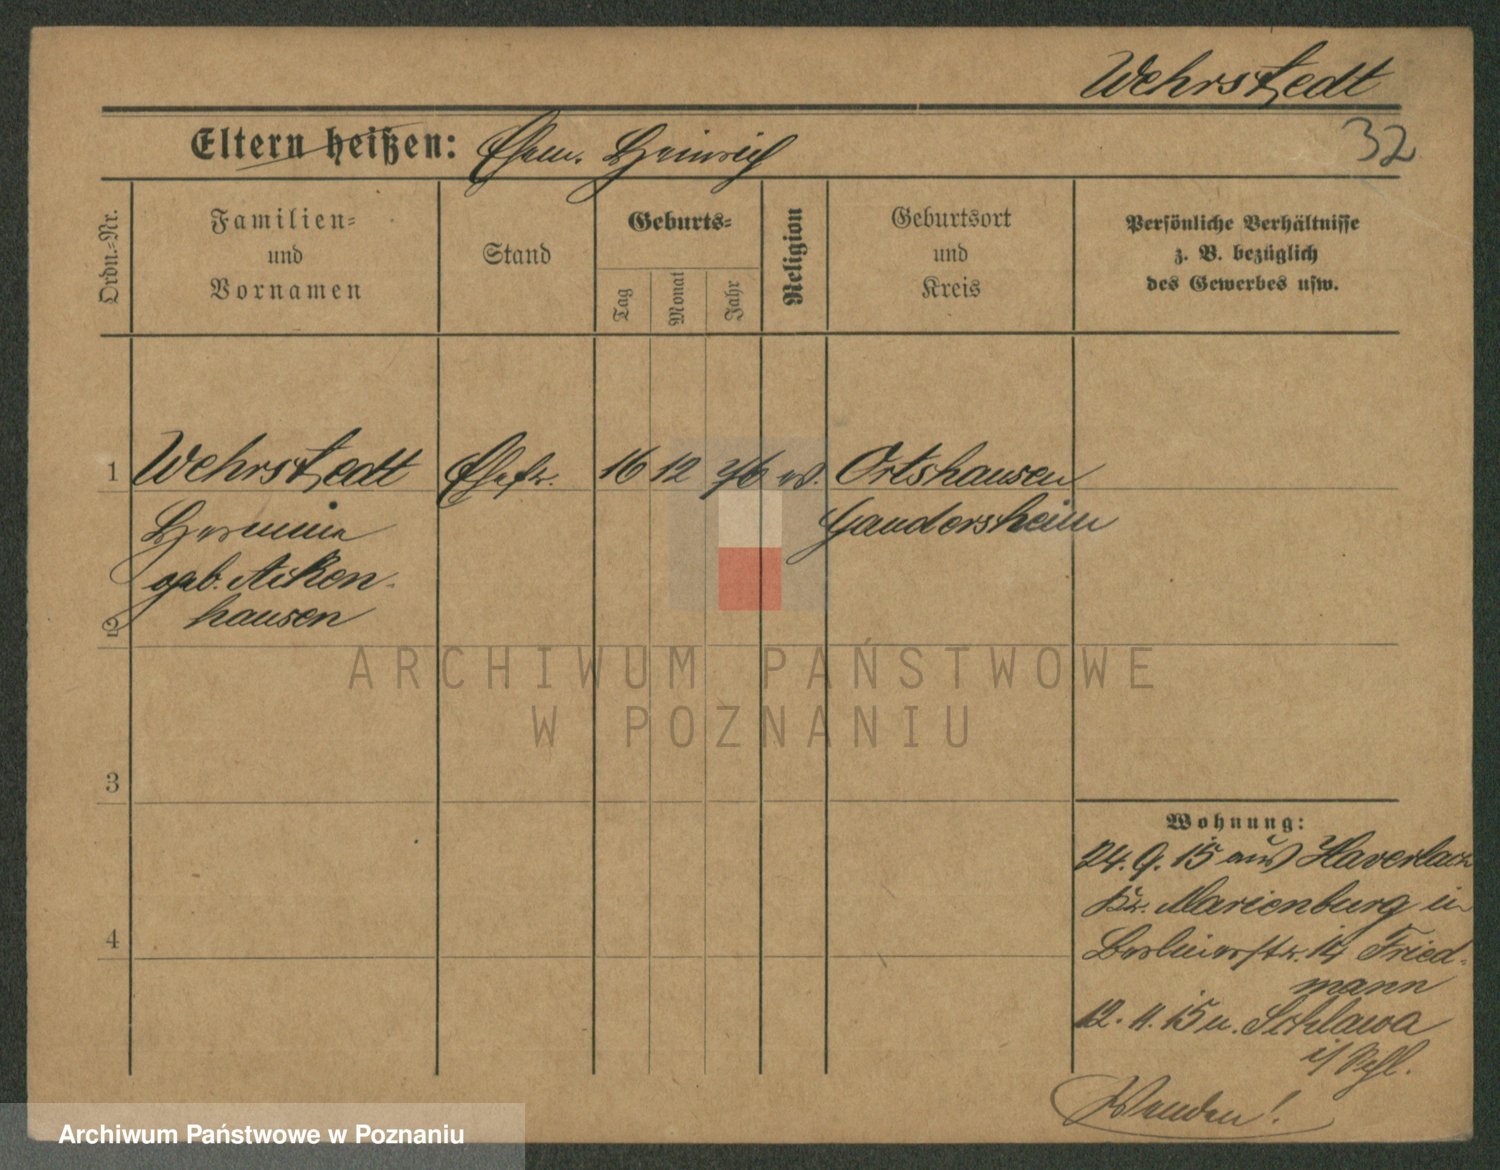 Wehrstedt
32
Eltern heißen: Ehem. Heinrich
Ordn.-Nr.
Familien-
und
Vornamen
Stand
Geburts-
Tag
Monat
Jahr
Religion
Geburtsort
und
Kreis
Persönliche Verhältnisse
z. B. bezüglich
des Gewerbes usw.
1 Wehrstedt Ehefr. 16 12 76 ev. Ortshausen
Hermine Gandersheim
geb. Aiken-
hausen
2
3
4
Wohnung:
24. 9. 15 aus Haverlach
Kr. Marienburg in
Berlinerstr. 14 Fried-
mann
12. 11. 15 n. Schlawa
i/ Schl.
Wenden!
ARCHIWUM PAŃSTWOWE
W POZNANIU
Archiwum Państwowe w Poznaniu